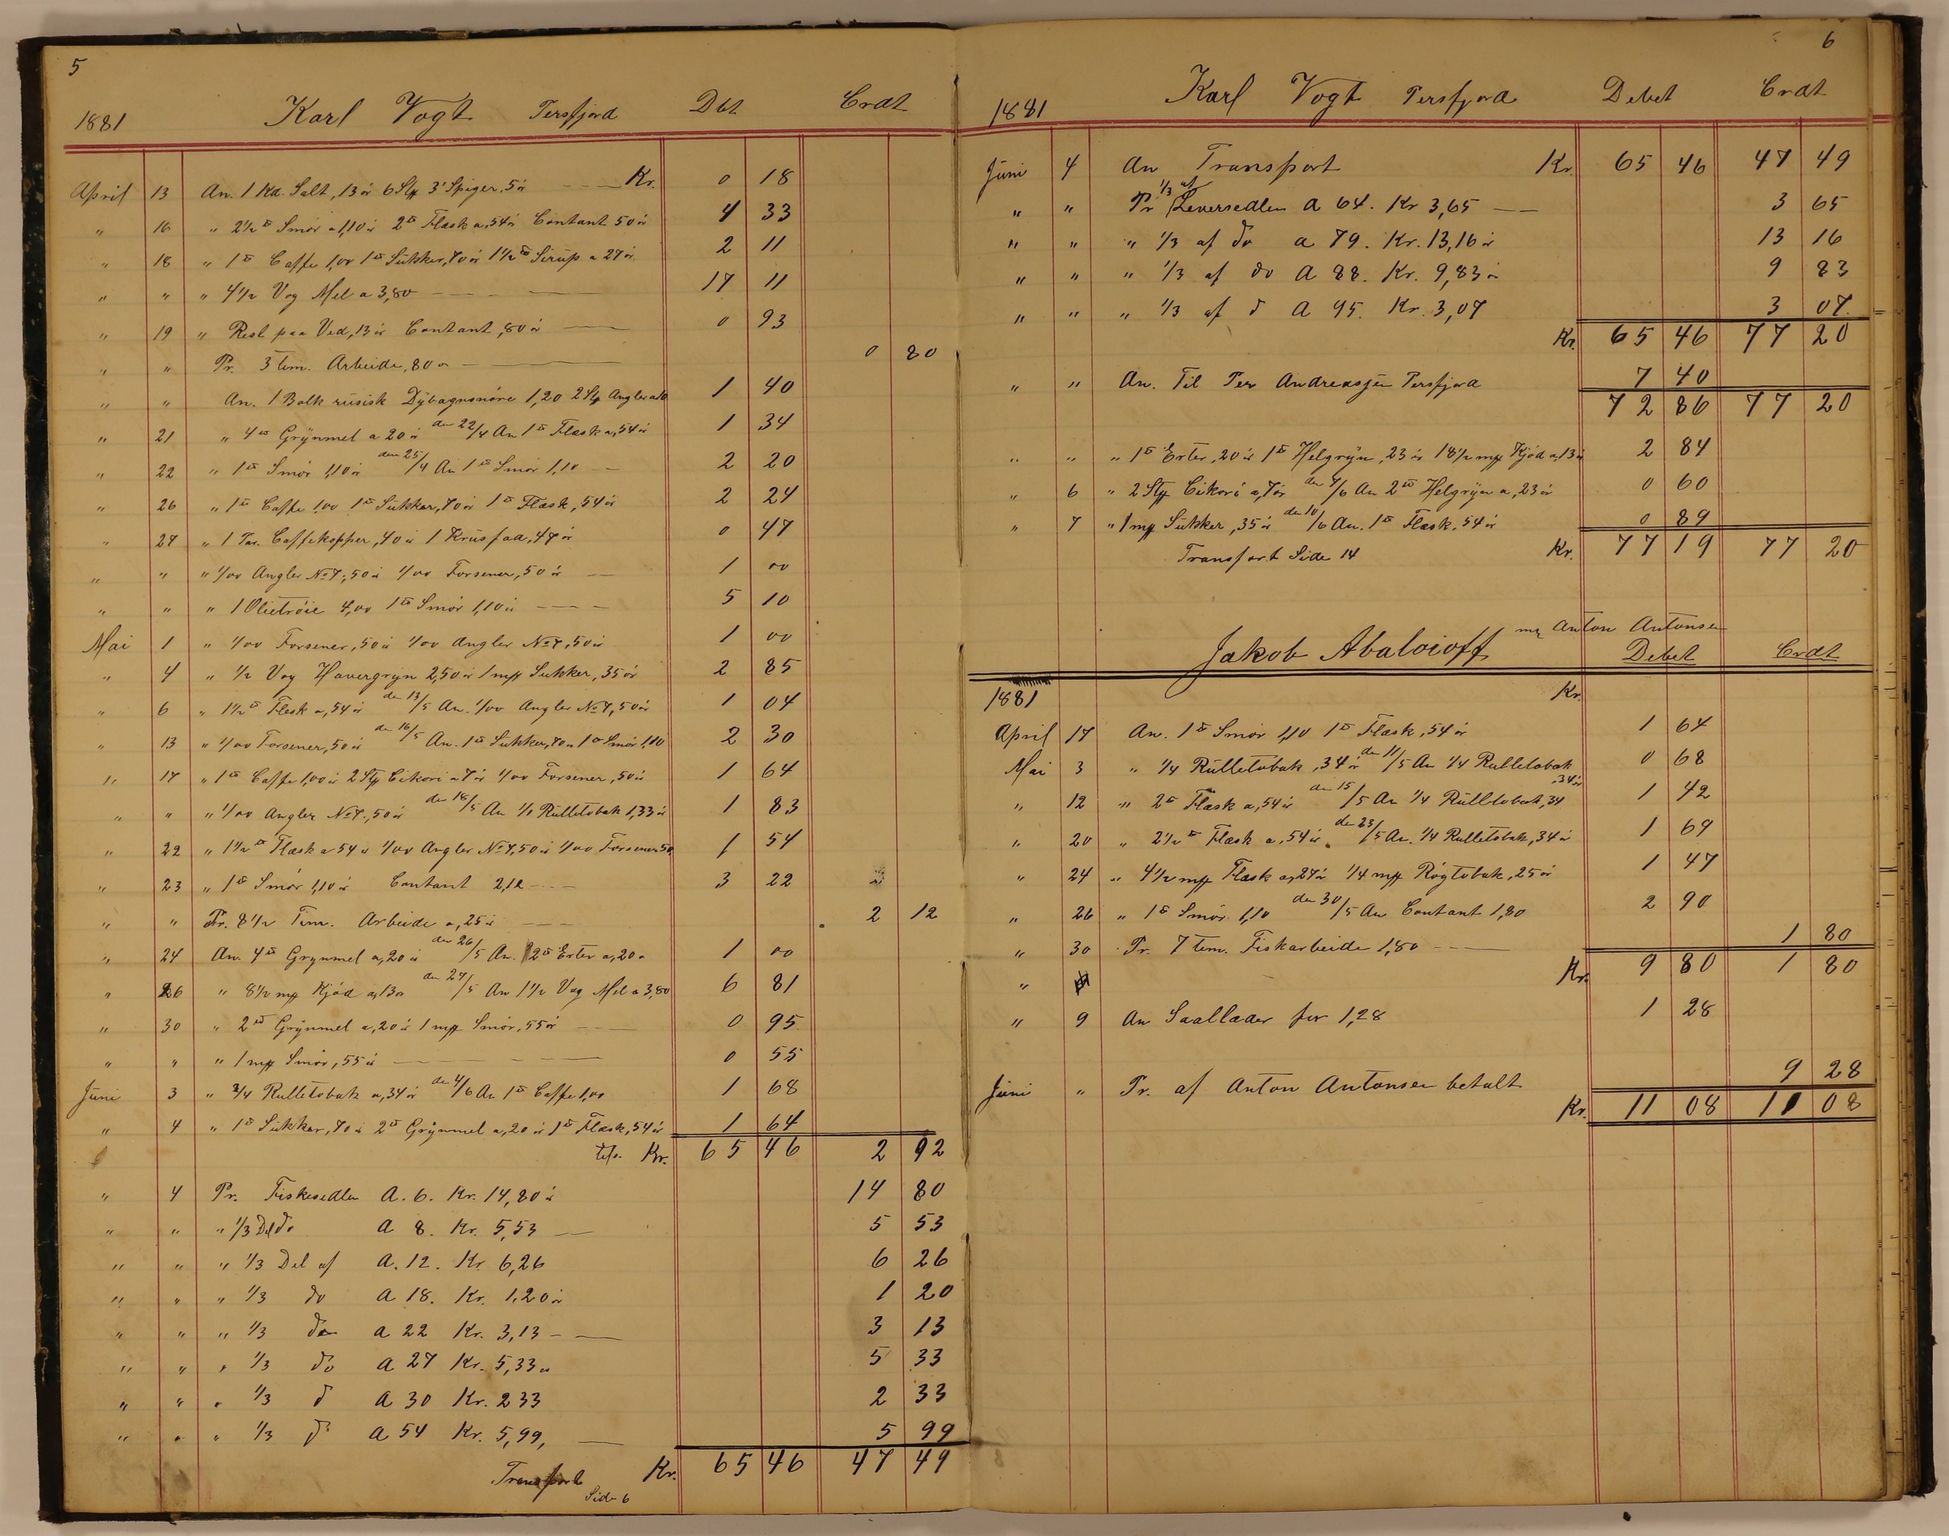 5
1881 Karl Vogt Persfjord Dbt Crdt
April 13 An. 1 Kd. Salt, 13 ör 6 Stk 3" Spiger, 5 ör Kr. 0 18
" 16 " 2 1/2 ℔ Smör a 1,10 ör 2 ℔ Flæsk a, 54 ör Contant 50 ör 4 33
" 18 " 1 ℔ Caffe 1,00 1 ℔ Sükker, 70 ör 1 1/2 ℔ Sirup a 27 ör 2 11
" " " 4 1/2 Vog Mel a 3,80 17 11
" 19 " Rest paa Ved, 13 ör Contant, 80 ör 0 93
" " Pr. 3 tim. Arbeide, 80 ör 0 80
" " An. 1 Bolk rüsisk Dybagnsnöre 1,20 2 Stk Angler a 10 1 40
" 21 " 4 ℔ Grynmel a 20 ör den 22/4 An 1 ℔ Flæsk a, 54 ör 1 34
" 22 " 1 ℔ Smör 1,10 ör den 25/4 An 1 ℔ Smör 1,10 2 20
" 26 " 1 ℔ Caffe 1,00 1 ℔ Sükker, 70 ör 1 ℔ Flæsk, 54 ör 2 24
" 27 " 1 Par. Caffekopper, 40 ör 1 Krusfad, 47 ör 0 47
" " " 1/00 Angler No 7, 50 ör 1/00 Forsener, 50 ör 1 00
" " " 1 Olietröie 4,00 1 ℔ Smör 1,10 ör 5 10
Mai 1 " 1/00 Forsener, 50 ör 1/00 Angler No 7, 50 ör 1 00
" 4 " 1/2 Vog Havergryn 2,50 ör 1 mp Sukker, 35 ör 2 85
" 6 " 1 1/2 ℔ Flæsk a, 54 ör den 13/5 An. 1/00 Angler No 7, 50 ör 1 04
" 13 " 1/00 Forsener, 50 ör den 16/5 An. 1 ℔ Sukker, 70 ör 1 ℔ Smör 1,10 2 30
" 17 " 1 ℔ Caffe 1,00 ör 2 Stk Cikori a 7 ör 1/00 Forsener, 50 ör 1 64
" " " 1/00 Angler No 7, 50 ör den 18/5 An 1/1 Rulletobak 1,33 ör 1 83
" 22 " 1 1/2 ℔ Flæsk a 54 ör 1/00 Angler No 7, 50 ör 1/00 Forsener 50 1 54
" 23 " 1 ℔ Smör 1,10 ör Contant 2,12 3 22
" " Pr. 8 1/2 Tim. Arbeide a, 25 ör 2 12
" 24 An. 4 ℔ Grynmel a, 20 ör den 26/5 An. 2 ℔ Erter a, 20 ör 1 00
" 26 " 8 1/2 mp Kjöd a, 13 ör den 27/5 An 1 1/2 Vog Mel a 3,80 6 81
" 30 " 2 ℔ Grynmel a, 20 ör 1 mp Smör, 55 ör 0 95
" " " 1 mp Smör, 55 ör 0 55
Juni 3 " 3/4 Rulletobak a, 34 ör den 4/6 An 1 ℔ Caffe 1,00 1 68
" 4 " 1 ℔ Sükker, 70 ör 2 ℔ Grynmel a, 20 ör 1 ℔ Flæsk, 54 ör 1 64
Kr. 65 46 2 92
" 4 Pr. Fiskesedlen A. 6. Kr. 14,80 ör 14 80
" " " 1/3 Del do A 8. Kr. 5,53 5 53
" " " 1/3 Del af A. 12. Kr 6,26 6 26
" " " 1/3 do A 18. Kr. 1,20 ör 1 20
" " " 1/3 do A 22 Kr. 3,13 3 13
" " " 1/3 do A 27 Kr. 5,33 ör 5 33
" " " 1/3 d A 30 Kr. 2 33 2 33
" " " 1/3 d A 54 Kr. 5,99, 5 99
Transport Kr. 65 46 47 49
Side 6
6
1881 Karl Vogt Persfjord Debet Crdt
Juni 4 An Transport Kr. 65 46 47 49
" " Pr 1/3 af Leversedlen A 64. Kr 3,65 3 65
" " " 1/3 af do A 79. Kr. 13,16 ör 13 16
" " " 1/3 af do A 88. Kr. 9,83 ör 9 83
" " " 1/3 af d A 95. Kr. 3,07 3 07
Kr. 65 46 77 20
" " An. Til Per Andreassen Persfjord 7 40
72 86 77 20
" " " 1 ℔ Erter, 20 ör 1 ℔ Helgryn, 23 ör 18 1/2 mp Kjöd a, 13 ör 2 84
" 6 " 2 Stk Cikori a, 7 ör den 7/6 An 2 ℔ Helgryn a, 23 ör 0 60
" 7 " 1 mp Sükker, 35 ör den 10/6 An. 1 ℔ Flæsk, 54 ör 0 89
Transport Side 14 Kr. 77 19 77 20
Jakob Abaloioff mz Anton Antonsen
Debet Crdt
1881 Kr.
April 17 An. 1 ℔ Smör 1,10 1 ℔ Flæsk, 54 ör 1 64
Mai 3 " 1/4 Rülletobak, 34 ör den 11/5 An 1/4 Rulletobak, 34 ör 0 68
" 12 " 2 ℔ Flæsk a, 54 ör den 15/5 An 1/4 Rülletobak, 34 1 42
" 20 " 2 1/2 ℔ Flæsk a, 54 ör. den 23/5 An. 1/4 Rulletobak, 34 ör 1 69
" 24 " 4 1/2 mp Flæsk a, 27 ör 1/4 mp Rögtobak, 25 ör 1 47
" 26 " 1 ℔ Smör 1,10 den 30/5 An Contant 1,80 2 90
" 30 Pr. 7 tim. Fiskarbeide 1,80 1 80
" Kr. 9 80 1 80
" 9 An Saallæder for 1,28 1 28
Juni " Pr. af Anton Antonsen betalt 9 28
Kr. 11 08 11 08